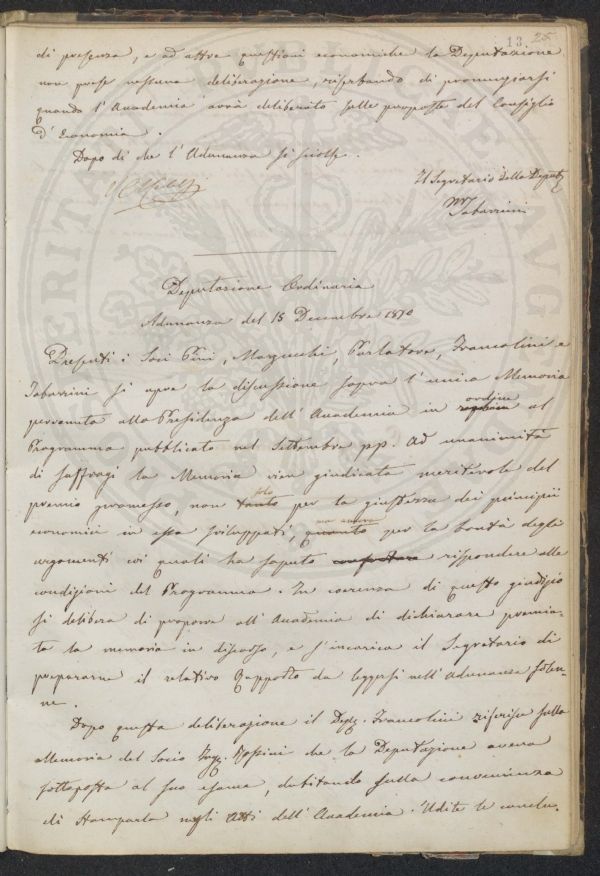 13. 25
di presenza, e ad altre questioni economiche la Deputazione
non prese nessuna deliberazione, riserbando di pronunziarsi
quando l'Accademia avrà deliberato sulle proposte del Consiglio
d'Economia.
Dopo di che l'Adunanza si sciolse.
Il Segretario della Deputz.
M Tabarrini
Deputazione Ordinaria
Adunanza del 15 Decembre 1870
Presenti i Soci Pini, Marzucchi, Parlatore, Francolini e
Tabarrini si apre la discussione sopra l'unica Memoria
ordine
pervenuta alla Presidenza dell'Accademia in al
Programma pubblicato nel Settembre pp. Ad unanimità
di suffragi la Memoria vien giudicata meritevole del
solo
premio promesso, non tanto per la giustezza dei principii
ma ancora
economici in essa sviluppati, quanto per la bontà degli
argomenti coi quali ha saputo confortare rispondere alle
condizioni del Programma. In coerenza di questo giudizio
si delibera di proporre all'Accademia di dichiarare premia-
ta la memoria in discorso, e s'incarica il Segretario di
prepararne il relativo Rapporto da leggersi nell'Adunanza solen-
ne.
Dopo questa deliberazione il Francolini riferisce sulla
Memoria del Socio Rossini che la Deputazione aveva
sottoposta al suo esame, dubitando sulla convenienza
di stamparla negli Atti dell'Accademia. Udite le conclu-